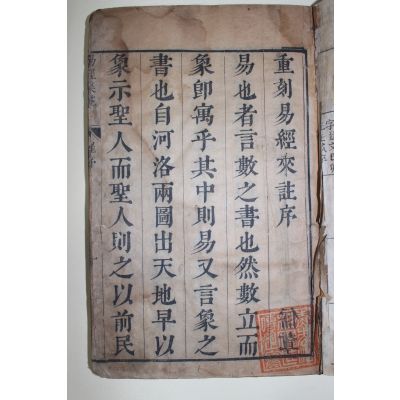 重刻易經來註序
易也者言數之書也然數立而
象卽寓乎其中則易又言象之
書也自河洛兩圖出天地早以
象示聖人而聖人則之以前民